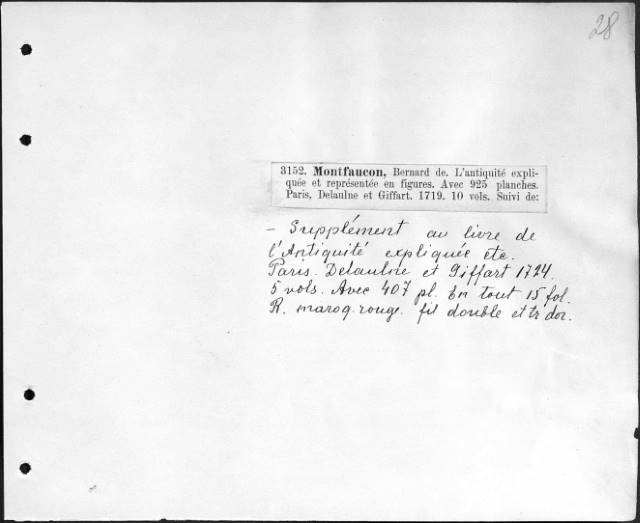 28
3152. Montfaucon, Bernard de. L'antiquité expli-
quée et représentée en figures. Avec 925 planches.
Paris, Delaulne et Giffart. 1719. 10 vols. Suivi de:
- Supplément au livre de
l'Antiquité expliquée etc.
Paris. Delaulne et Giffart 1724.
5 vols. Avec 407 pl. En tout 15 fol.
R. maroq. rouge. fil double et tr dor.